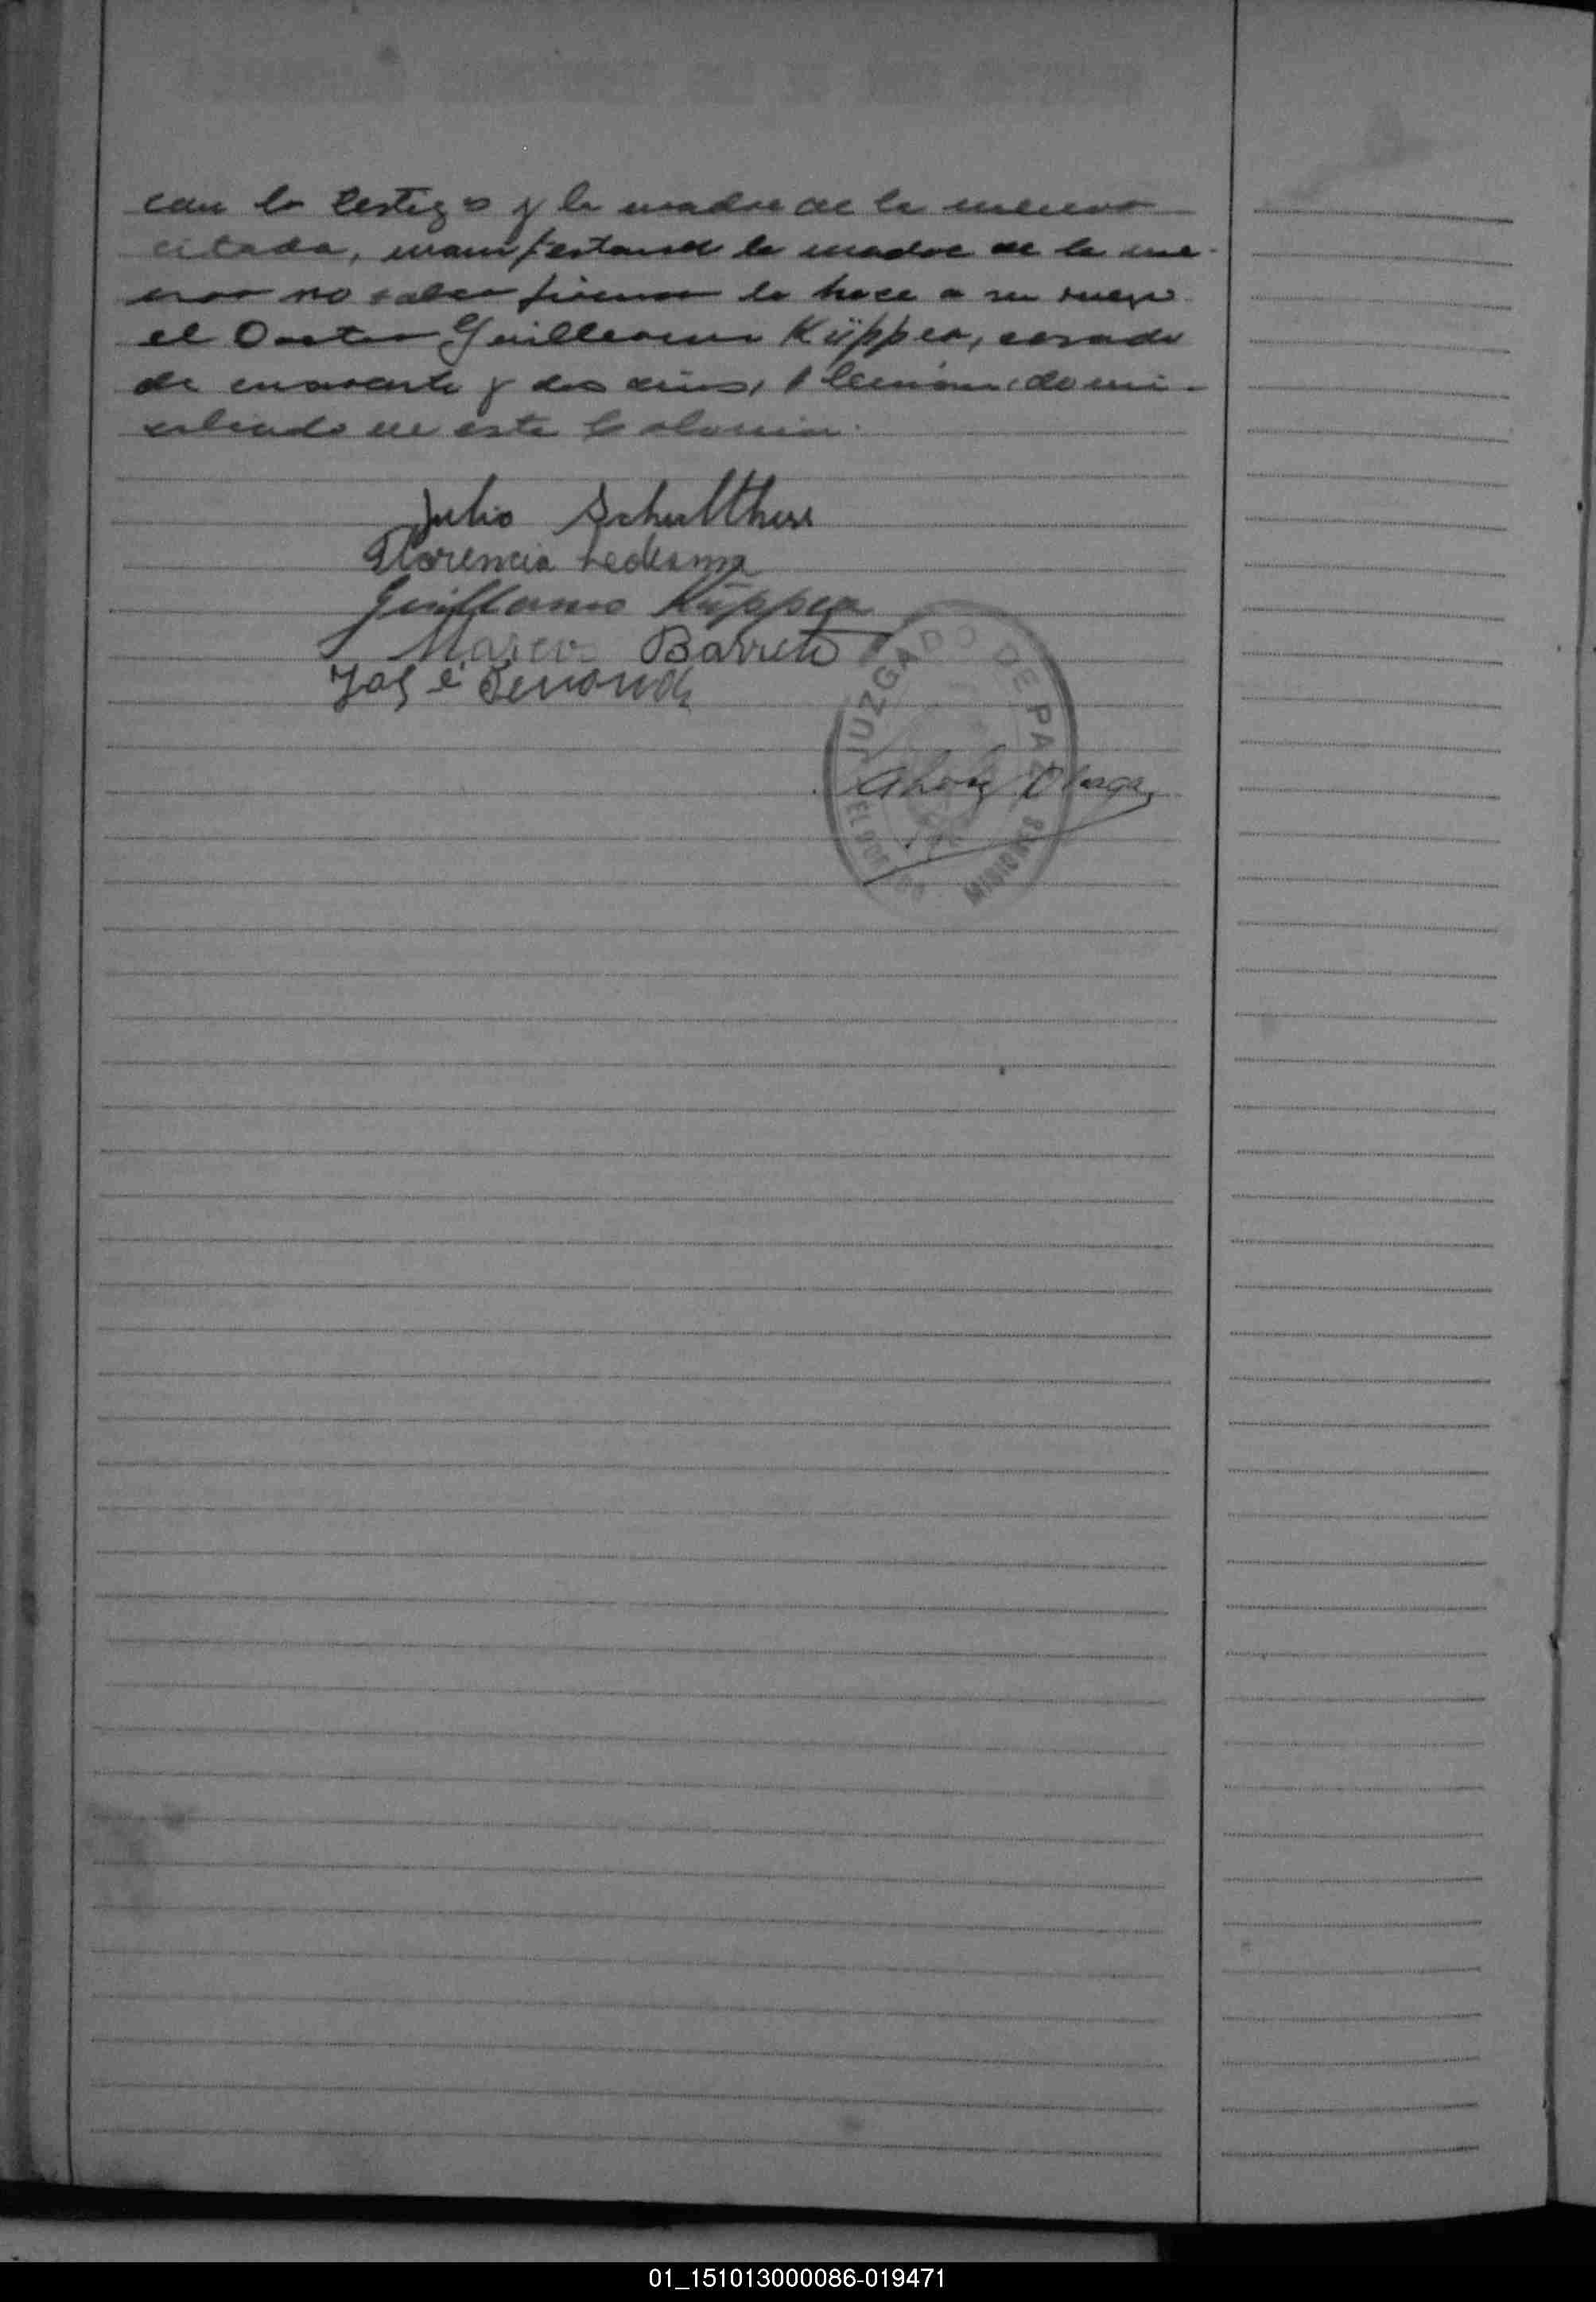 con lo testigos y la madre de la menor
citada, manifestand la madre de la me-
nor no saber firmar lo hace a su ruego
el Doctor Guillermo Küpper, casado
de cuarenta y dos años, Alemán, domi-
ciliado en esta Colonia.
Julio Schulthess
Florencia Ledesma
Guillermo Küpper
Marcos Barreto
José
JUZGADO DE PAZ
MISIONES
01_151013000086-019471